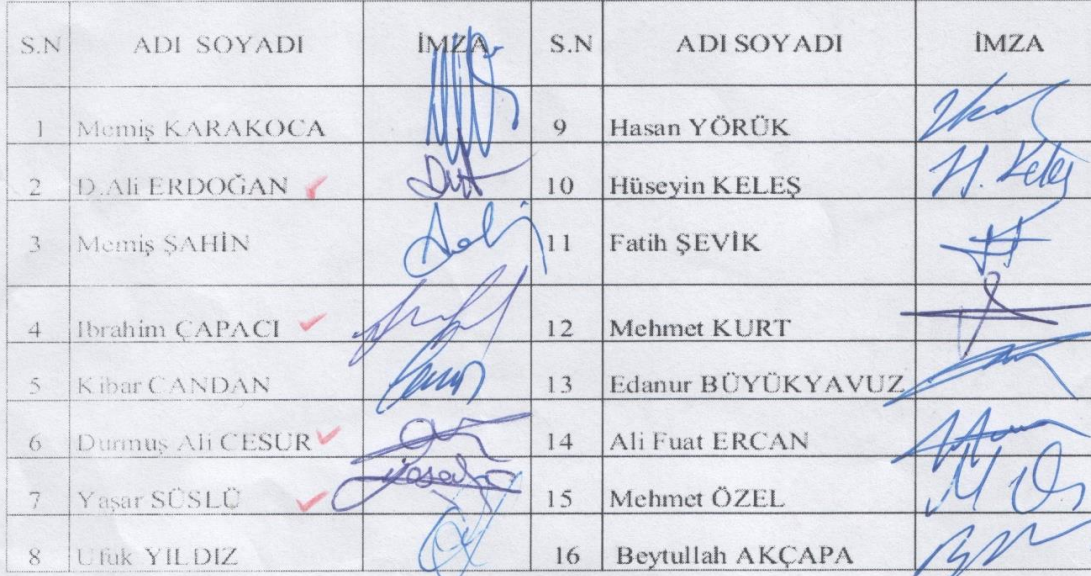 S.N ADI SOYADI İMZA S.N ADI SOYADI İMZA
1 Memiş KARAKOCA 9 Hasan YÖRÜK
2 D.Ali ERDOĞAN 10 Hüseyin KELEŞ H. Keleş
3 Memiş ŞAHİN 11 Fatih ŞEVİK
4 İbrahim ÇAPACI 12 Mehmet KURT
5 Kibar CANDAN 13 Edanur BÜYÜKYAVUZ
6 Durmuş Ali CESUR 14 Ali Fuat ERCAN
7 Yaşar SÜSLÜ 15 Mehmet ÖZEL
8 Ufuk YILDIZ 16 Beytullah AKÇAPA